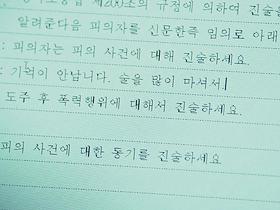 제200조의 규정에 의하여 진술을
알려준다음 피의자를 신문한즉 임의로 아래
: 피의자는 피의 사건에 대해 진술하세요.
: 기억이 안납니다. 술을 많이 마셔서
도주 후 폭력행위에 대해서 진술하세요.
피의 사건에 대한 동기를 진술하세요